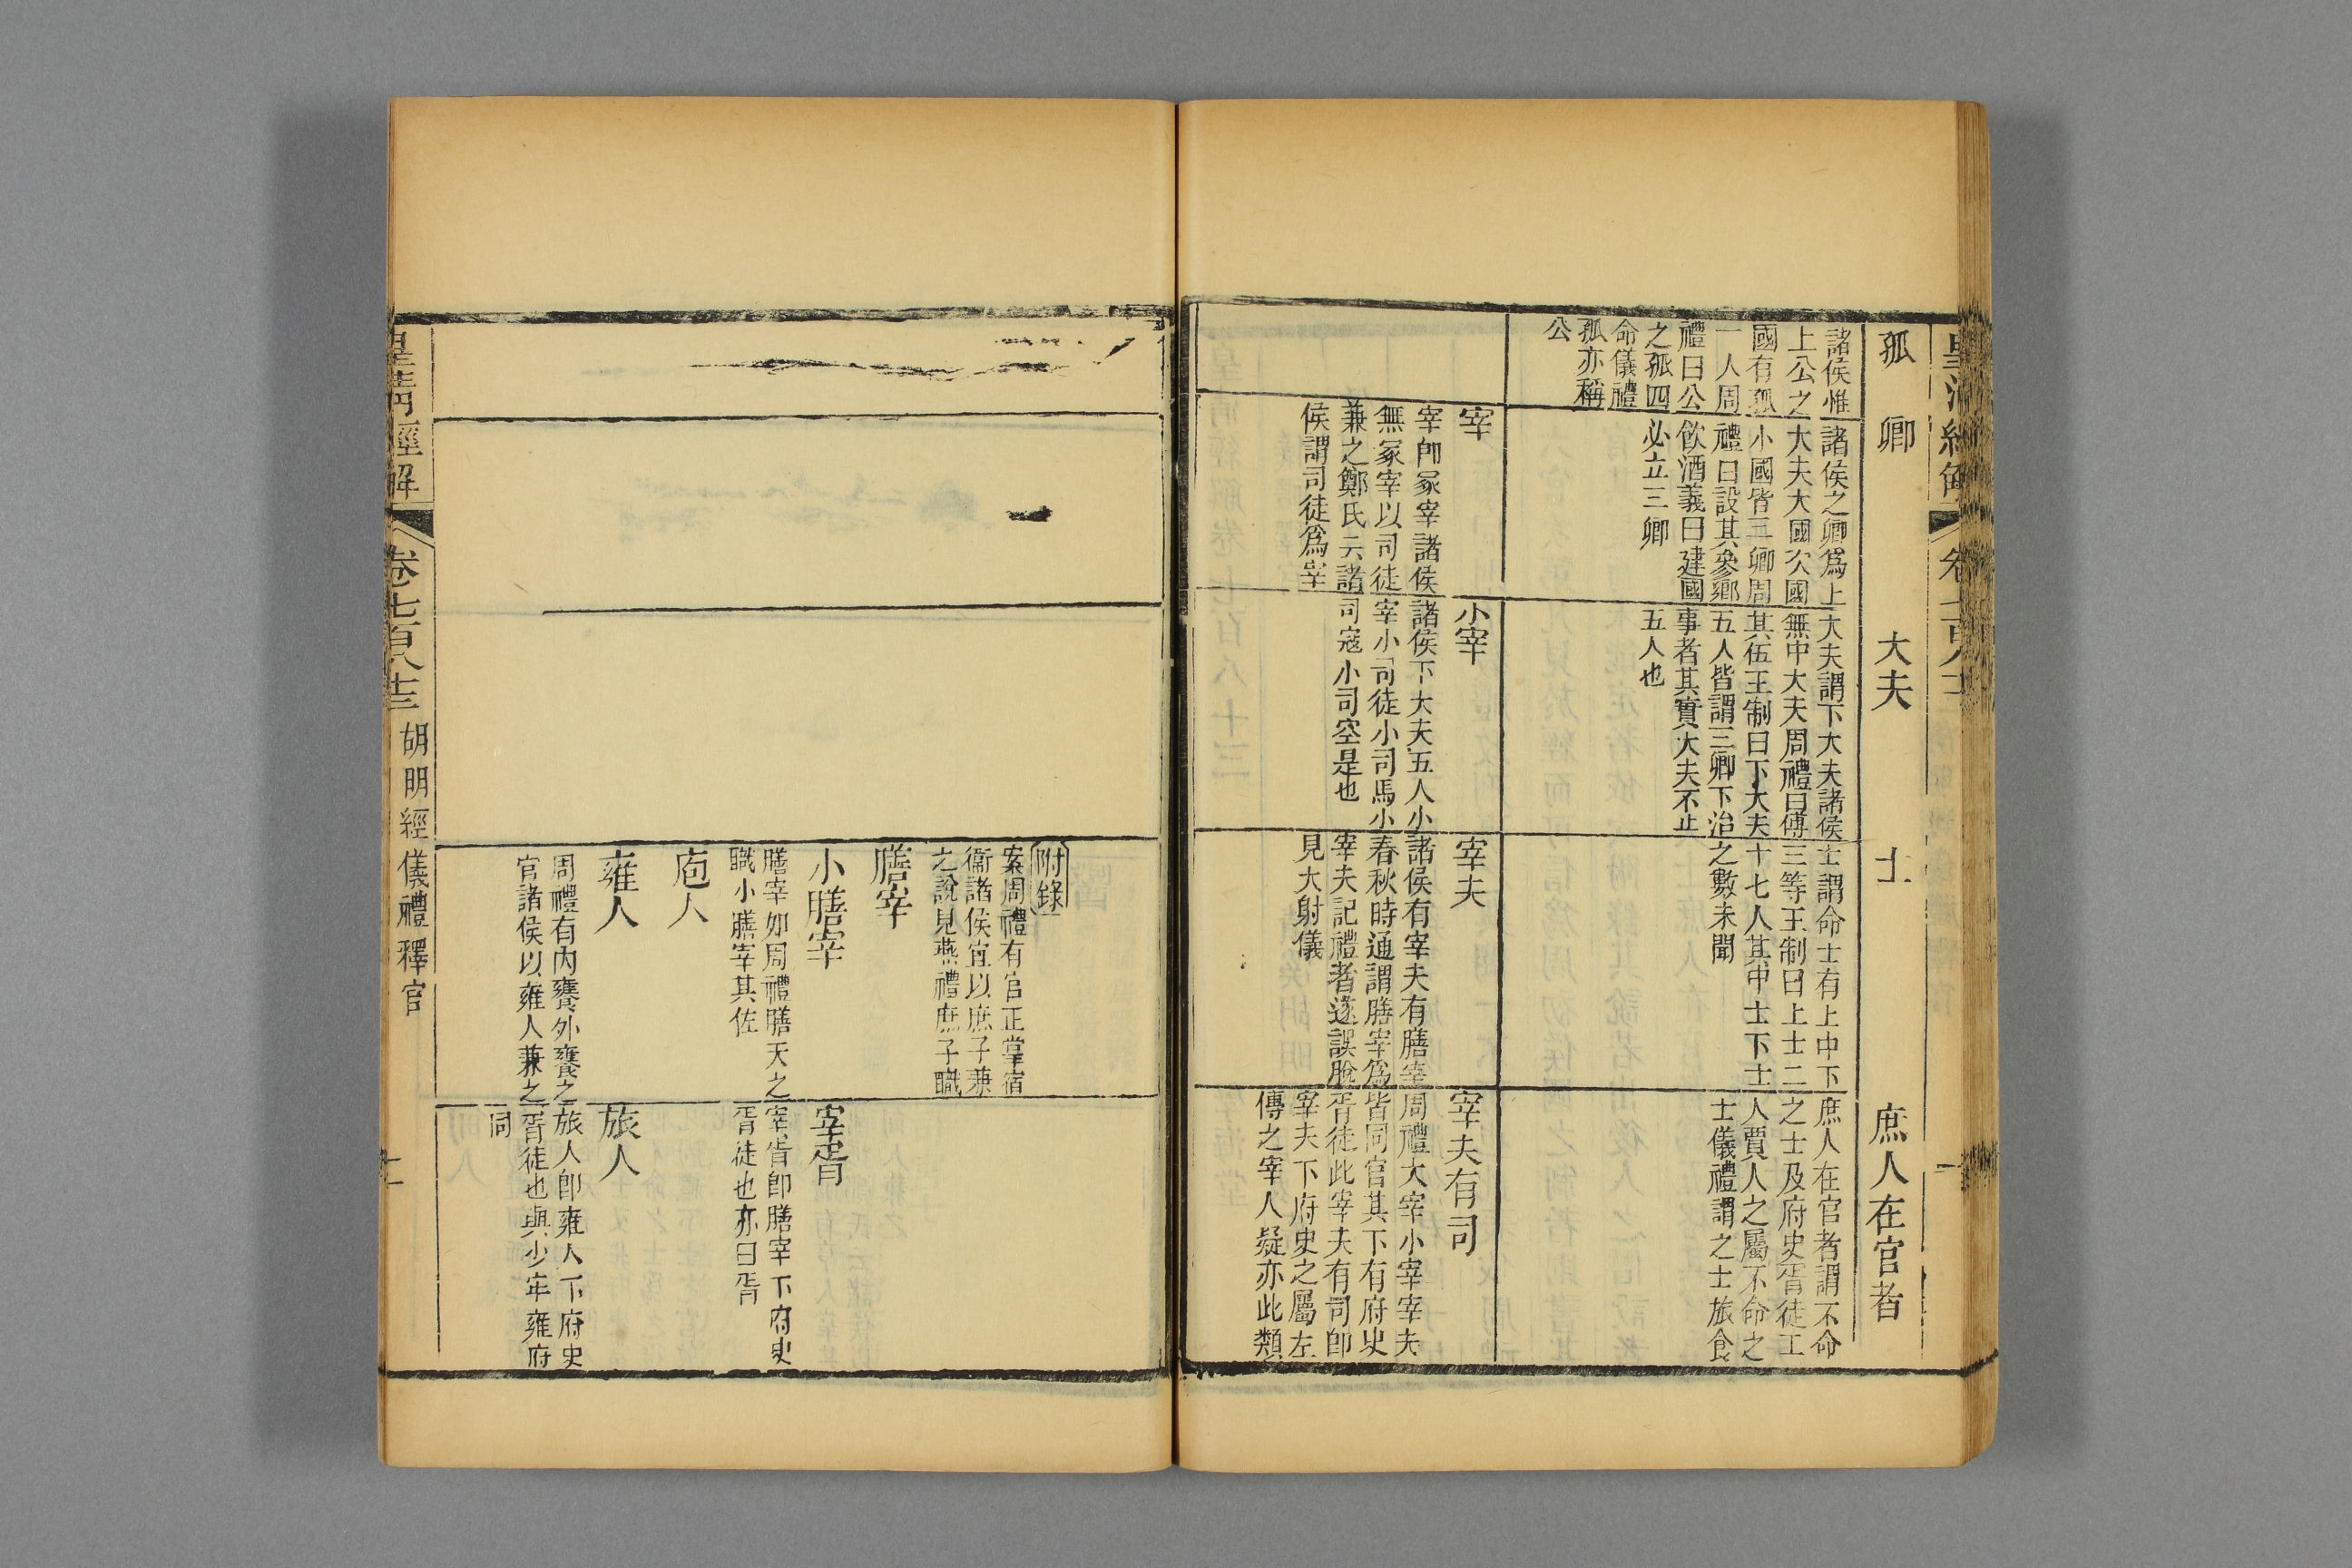 孤
卿
大夫
士
庶人在官者
諸侯惟
上公之
國有孤
一人周
禮曰公
之孤四
命儀禮
孤亦稱
公
諸侯之卿爲上
大夫大國次國
小國皆三卿周
禮曰設其參鄉
飲酒義曰建國
必立三卿
大夫謂下大夫諸侯
無中大夫周禮曰傅
其伍王制曰下大夫
五人皆謂三卿下治
事者其實大夫不止
五人也
士謂命士有上中下
三等王制曰上士二
十七人其中士下士
之數未聞
庶人在官者謂不命
之士及府史胥徒工
人賈人之屬不命之
士儀禮謂之士旅食
宰
宰卽冢宰諸侯
無冢宰以司徒
兼之鄭氏云諸
侯謂司徒爲宰
小宰
諸侯下大夫五人小
宰小司徒小司馬小
司寇小司空是也
宰夫
諸侯有宰夫有膳宰
春秋時通謂膳宰爲
宰夫記禮者遂誤脫
見大射儀
宰夫有司
周禮大宰小宰宰夫
皆同官其下有府史
胥徒此宰夫有司卽
宰夫下府史之屬左
傳之宰人疑亦此類
附錄
案周禮有官正掌宿
衞諸侯宜以庶子兼
之說見燕禮庶子職
膳宰
小膳宰
膳宰如周禮膳夫之
職小膳宰其佐
宰胥
宰胥卽膳宰下府史
胥徒也亦曰胥
庖人
雍人
周禮有內饔外饔之
官諸侯以雍人兼之
旅人
旅人卽雍人下府史
胥徒也與少牢雍府
同
皇清經解
卷七百八十三
胡明經儀禮釋官